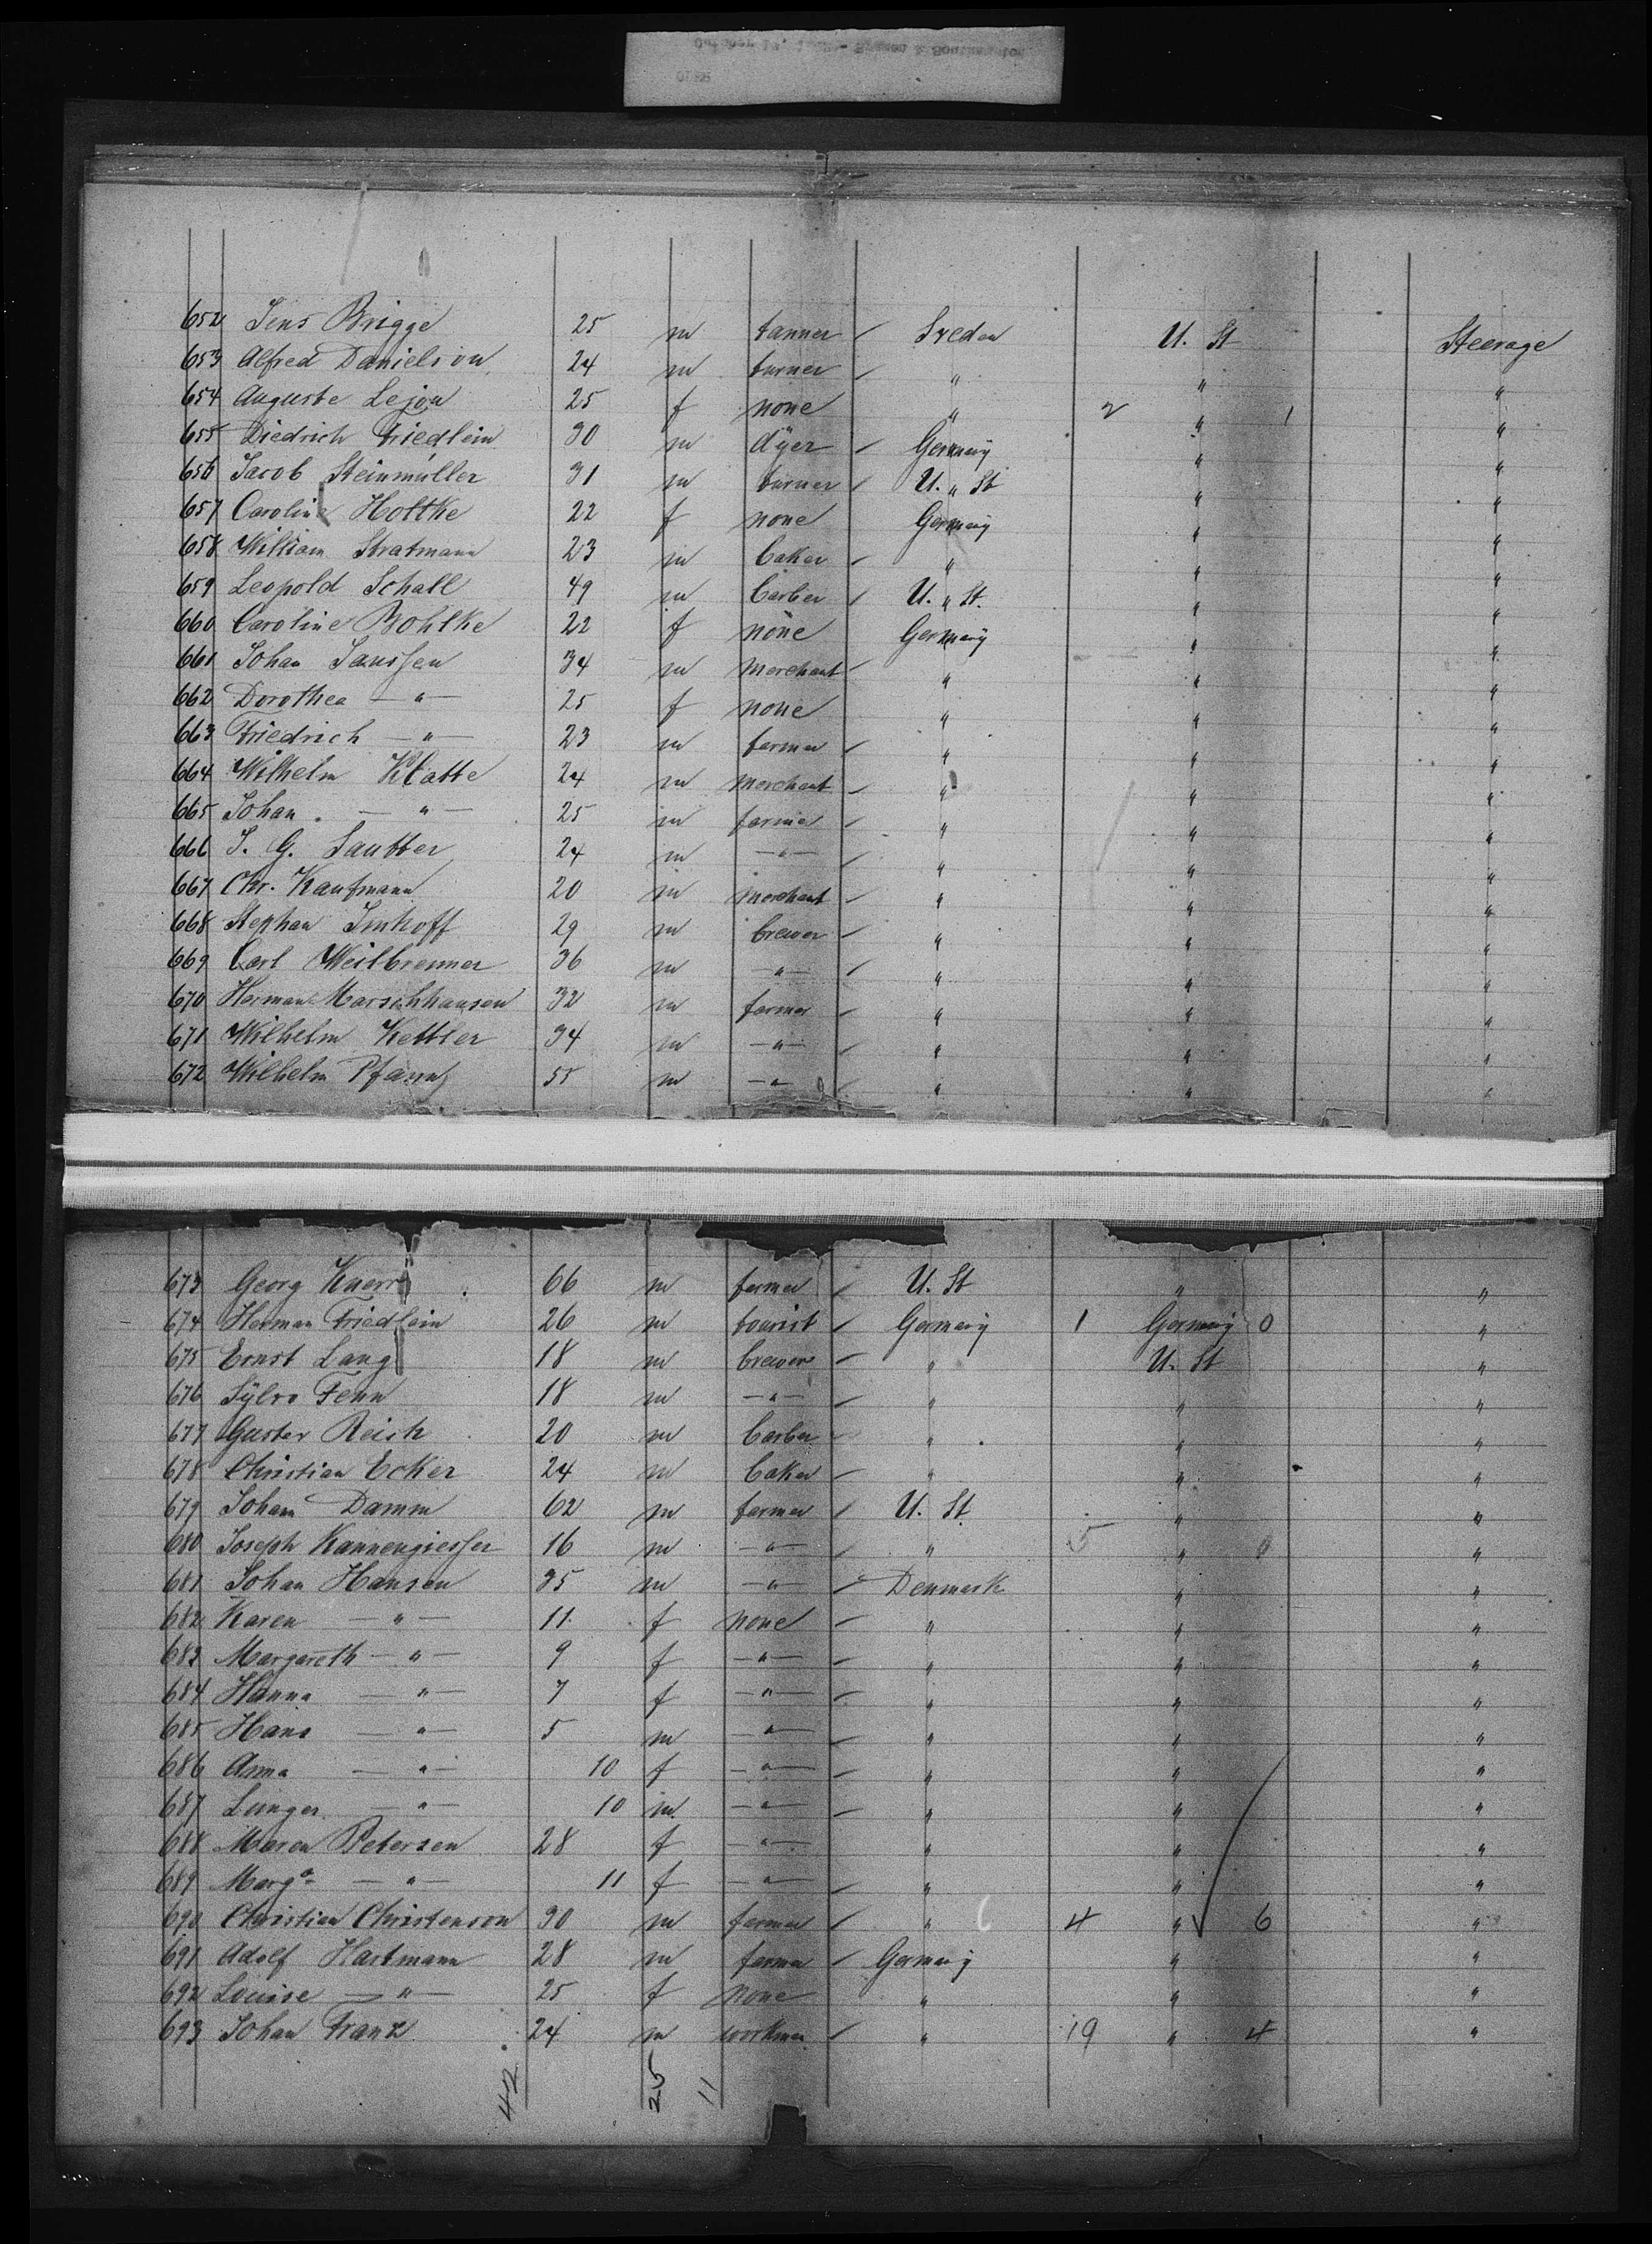 652 Jens Brigge 25 m tanner / Sveden U. St Steerage
653 Alfred Danielson 24 m turner / " " "
654 Auguste Lejon 25 f none " 2 " 1 "
655 Diedrich Friedlein 30 m dÿer / Germanÿ " "
656 Jacob Steinmüller 31 m turner / U. " St " "
657 Caroline Holtke 22 f none Germanÿ " "
658 William Stratmann 23 m baker / " " "
659 Leopold Schall 49 m barber / U. " St. " "
660 Caroline Bohlke 22 f none Germanÿ " "
661 Johan Janssen 34 m merchant / " " "
662 Dorothea — " — 25 f none " " "
663 Friedrich — " — 23 m farmer / " " "
664 Wilhelm Klatte 24 m merchant / " " "
665 Johan — " — 25 m farmer / " " "
666 J. G. Sautter 24 m — " — / " " "
667 Chr. Kaufmann 20 m merchant / " " "
668 Stephan Imhoff 29 m brewer / " " "
669 Carl Weilbrenner 36 m — " — / " " "
670 Herman Marschhausen 32 m farmer / " " "
671 Wilhelm Kettler 34 m — " — / " " "
672 Wilhelm 55 m — " — / " " "
673 Georg Knerr 66 m farmer / U. St " "
674 Herman Friedlein 26 m tourist / Germanÿ 1 Germanÿ 0 "
675 Ernst Lang 18 m brewer / " U. St "
676 Sÿlvo Fenn 18 m — " — / " " "
677 Gustav Reich 20 m barber / " " "
678 Christian Ecker 24 m baker / " " "
679 Johann Damm 62 m farmer / U. St. " "
680 Joseph Kannengiesser 16 m — " — / " 5 " 0 "
681 Johan Hansen 35 m — " — / Denmark " "
682 Karen — " — 11 f none / " " "
683 Margareth — " — 9 f — " — / " " "
684 Hanna — " — 7 f — " — / " " "
685 Hans — " — 5 m — " — / " " "
686 Anna — " — 10 f — " — / " " "
687 — " — 10 m. — " — / " " "
688 Maren Petersen 28 f — " — " " "
689 Marg.a — " — 11 f — " — / " " "
690 Christian Christenson 30 m farmer / " 6 4 " 6 "
691 Adolf Hartmann 28 m farmer / Germanÿ " "
692 Louise — " — 25 f none " " "
693 Johan Franz 24 m workman / " 19 " 4 "
42 25 11